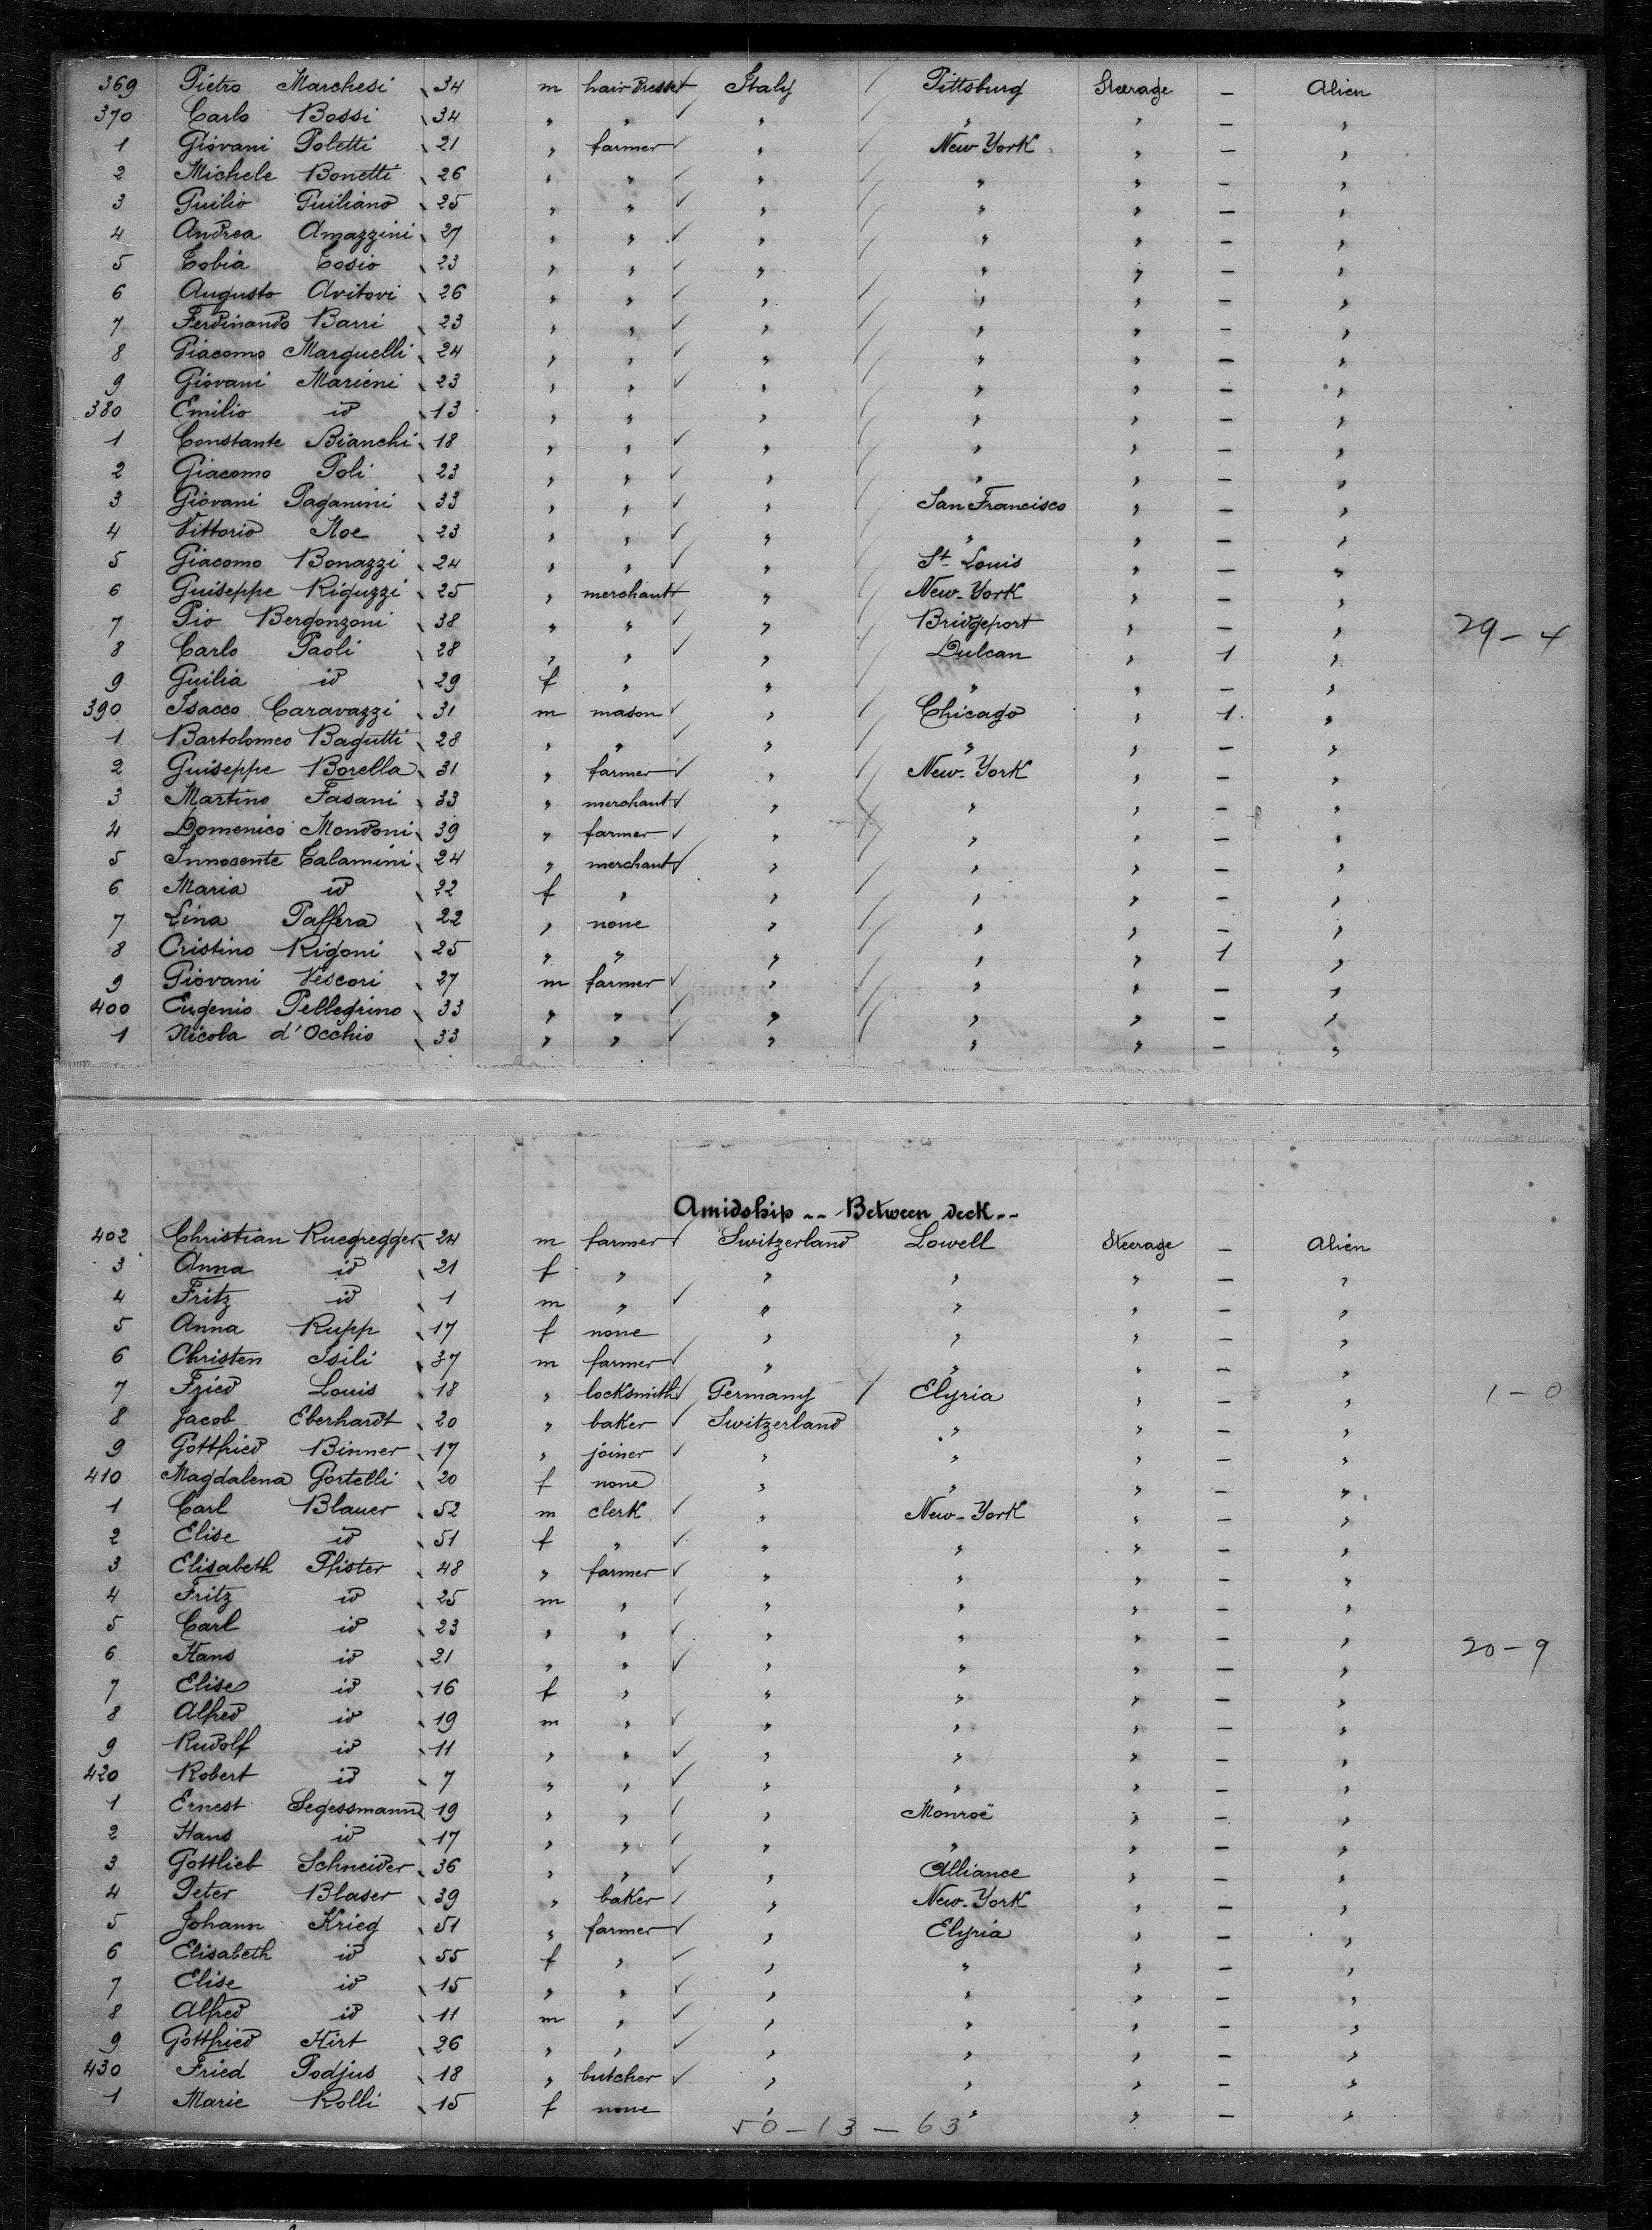 369 Pietro Marchesi 34 m hairdresser Italy Pittsburg Steerage — Alien
370 Carlo Bossi 34 " " " " " — "
1 Giovani Poletti 21 " farmer " New York " — "
2 Michele Bonetti 26 " " " " " — "
3 Guilio Guiliano 25 " " " " " — "
4 Andrea Amazzini 27 " " " " " — "
5 Tobia Tosio 23 " " " " " — "
6 Augusto Avitovi 26 " " " " " — "
7 Ferdinando Barri 23 " " " " " — "
8 Giacomo Marguelli 24 " " " " " — "
9 Giovani Mariéni 23 " " " " " — "
380 Emilio id 13 " " " " " — "
1 Constante Bianchi 18 " " " " " — "
2 Giacomo Poli 23 " " " " " — "
3 Giovani Paganini 33 " " " San Francisco " — "
4 Vittorio Noe 23 " " " " " — "
5 Giacomo Bonazzi 24 " " " St. Louis " — "
6 Guiseppe Riguzzi 25 " merchant " New-York " — "
7 Pio Bergonzoni 38 " " " Bridgeport " — " 29-4
8 Carlo Paoli 28 " " " Dulcan " 1 "
9 Guilia id 29 f " " " " — "
390 Isacco Caravazzi 31 m mason " Chicago " 1 "
1 Bartolomeo Bagutti 28 " " " " " — "
2 Guiseppe Borella 31 " farmer " New-York " — "
3 Martino Fasani 33 " merchant " " " — "
4 Domenico Mondoni 39 " farmer " " " — "
5 Innocente Calamini 24 " merchant " " " — "
6 Maria id 22 f " " " " — "
7 Lina Paffera 22 " none " " " — "
8 Cristino Rigoni 25 " " " " " 1 "
9 Giovani Vescori 27 m farmer " " " — "
400 Eugenio Pellegrino 33 " " " " " — "
1 Nicola d'Occhio 33 " " " " " — "
Amidship -- Between deck --
402 Christian Ruegregger 24 m farmer Switzerland Lowell Steerage — Alien
3 Anna id 21 f " " " " — "
4 Fritz id 1 m " " " " — "
5 Anna Rupp 17 f none " " " — "
6 Christen Isili 37 m farmer " " " — "
7 Fried Louis 18 " locksmith Germany Elyria " — " 1-0
8 Jacob Eberhardt 20 " baker Switzerland " " — "
9 Gottfried Binner 17 " joiner " " " — "
410 Magdalena Gortelli 20 f none " " " — "
1 Carl Blauer 52 m clerk " New-York " — "
2 Elise id 51 f " " " " — "
3 Elisabeth Pfister 48 " farmer " " " — "
4 Fritz id 25 m " " " " — "
5 Carl id 23 " " " " " — "
6 Hans id 21 " " " " " — " 20-9
7 Elise id 16 f " " " " — "
8 Alfred id 19 m " " " " — "
9 Rudolf id 11 " " " " " — "
420 Robert id 7 " " " " " — "
1 Ernest Segessmann 19 " " " Monroë " — "
2 Hans id 17 " " " " " — "
3 Gottlieb Schneider 36 " " " Alliance " — "
4 Peter Blaser 39 " baker " New-York " — "
5 Johann Krieg 51 " farmer " Elyria " — "
6 Elisabeth id 55 f " " " " — "
7 Elise id 15 " " " " " — "
8 Alfred id 11 m " " " " — "
9 Gottfried Hirt 26 " " " " " — "
430 Fried Podjus 18 " butcher " " " — "
1 Marie Rolli 15 f none " " " — "
50-13-63